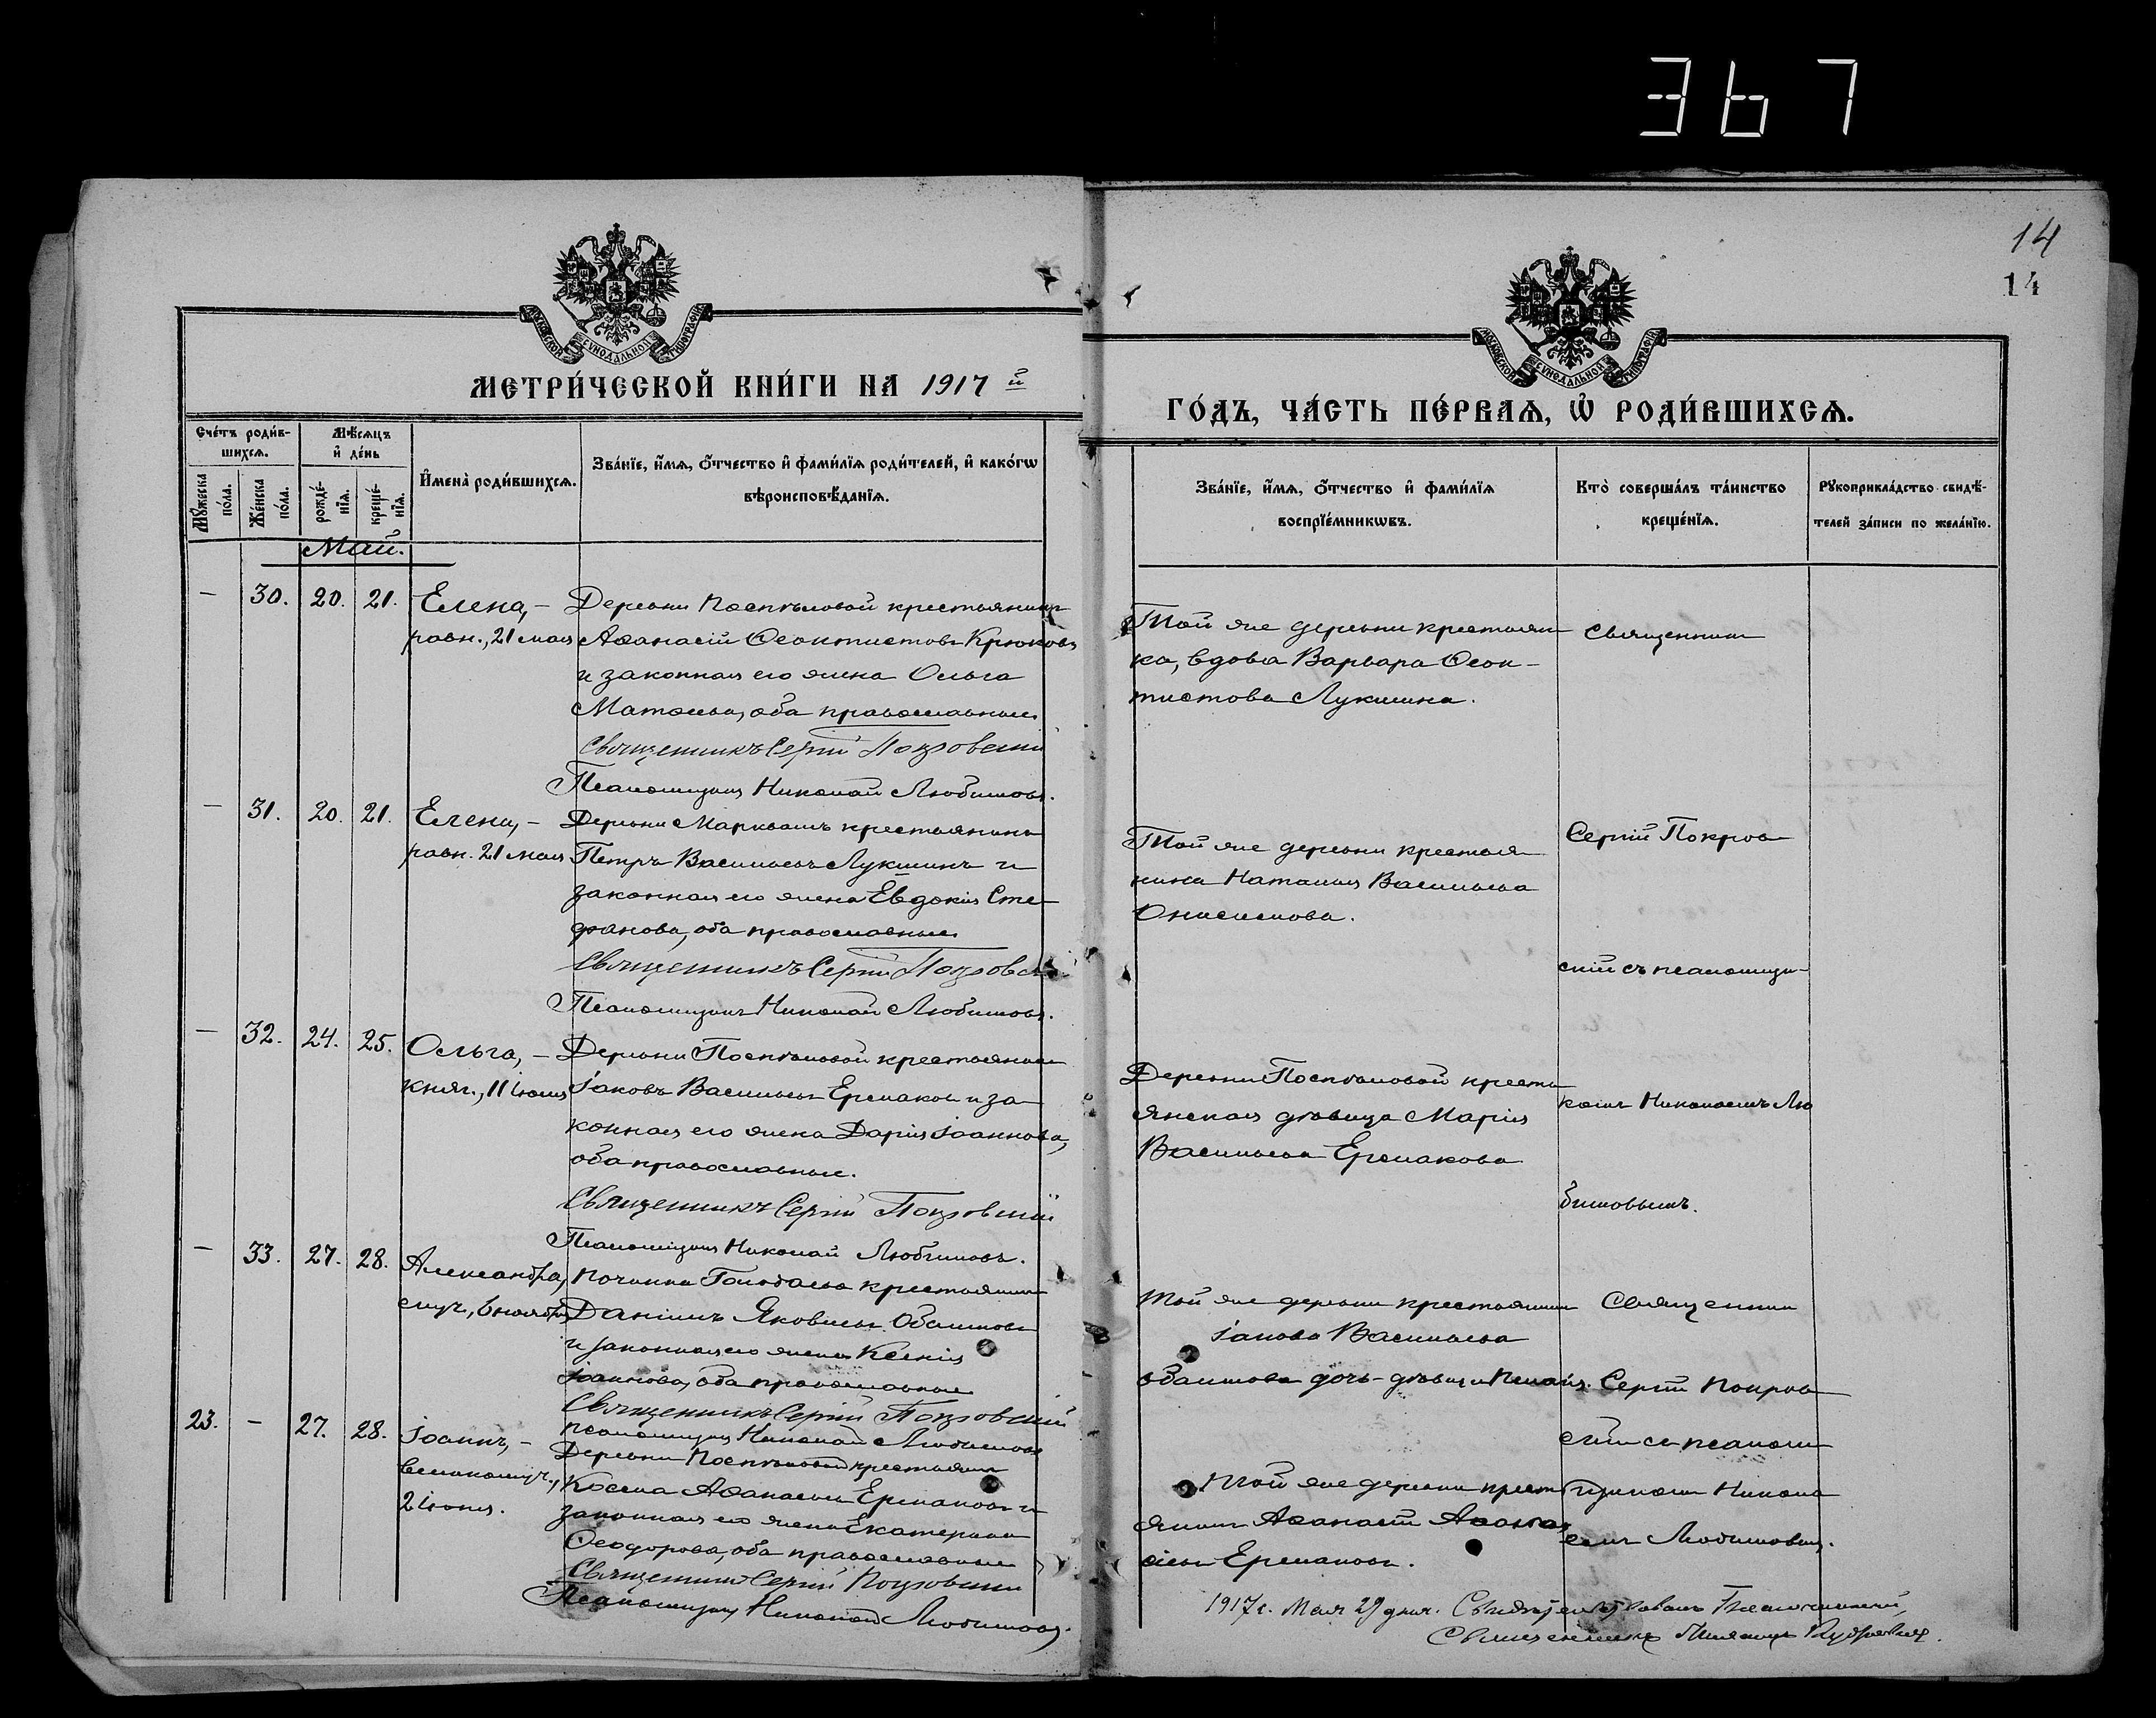 367
14
14
МЕТРИ́ЧЕСКОЙ КНИ́ГИ НА 1917 й
ГО́ДЪ, ЧА́СТЬ ПЕ́РВАѦ, Ѡ҆ РОДИ́ВШИХСѦ.
Сче́тъ роди́в-
шихсѧ.
Мѣ́сѧцъ
и҆ де́нь
Мꙋ́жеска
по́ла.
Же́нска
по́ла.
рожде́-
нїѧ.
креще́-
нїѧ.
И҆мена̀ роди́вшихсѧ.
Зва́нїе, и҆́мѧ, ѻ҆́тчество и҆ фами́лїѧ роди́телей, и҆ како́гѡ
вѣроисповѣ́данїѧ.
Зва́нїе, и҆́мѧ, ѻ҆́тчество и҆ фами́лїѧ
воспрїе́мникѡвъ.
Кто̀ соверша́лъ та́инство
креще́нїѧ.
Рꙋкоприкла́дство свидѣ́-
телей за́писи по жела́нїю.
Май.
— 30. 20. 21.
Елена, —
равн., 21 мая
Деревни Поспѣловой крестьянинъ
Аѳанасій Ѳеоктистовъ Крюковъ
и законная его жена Ольга
Матѳеева, оба православные
Священникъ Сергій Покровскій
Псаломщикъ Николай Любимовъ.
Той же деревни крестьян
ка, вдова Варвара Ѳеок-
тистова Лукшина.
Священник
— 31. 20. 21.
Елена, —
равн. 21 мая
Деревни Марквашъ крестьянинъ
Петръ Васильевъ Лукшинъ и
законная его жена Евдокія Сте-
фанова, оба православные
Священникъ Сергій Покровск
Псаломщикъ Николай Любимовъ.
Той же деревни крестья
нина Наталия Васильева
Онисимова.
Сергій Покров
скій съ псаломщи-
— 32. 24. 25.
Ольга, —
княг., 11 іюля
Деревни Поспѣловой крестьянинъ
Іаковъ Васильевъ Ермаковъ и за
конная его жена Дарія Іоаннова,
оба православные.
Священникъ Сергій Покровскій
Псаломщикъ Николай Любимовъ.
Деревни Поспѣловой кресть
янская дѣвица Марія
Васильева Ермакова
комъ Николаемъ Лю
бимовымъ.
— 33. 27. 28.
Александра,
муч., 6 ноября
Починка крестьянинъ
Даніилъ Яковлевъ
и законная его жена Ксенія
Іоаннова, оба православные
Священникъ Сергій Покровскій
псаломщикъ Николай Любимовъ
Той же деревни крестьянина
Іакова Васильева
дочь-дѣвица
Священник
Сергій Покров
скій съ псалом
23. — 27. 28.
Іоаннъ, —
великомуч.,
2 іюня.
Деревни Поспѣловой крестьянинъ
Косма Аѳанасьевъ Ермаковъ и
законная его жена Екатерина
Ѳеодорова, оба православные
Священникъ Сергій Покровскій
Псаломщикъ Николай Любимовъ.
Той же деревни крест
янинъ Аѳанасій Аѳана
сіевъ Ермаковъ.
щикомъ Никола
емъ Любимовымъ.
1917 г. Мая 29 дня. Свидѣтельствовалъ Благочинный,
Священникъ